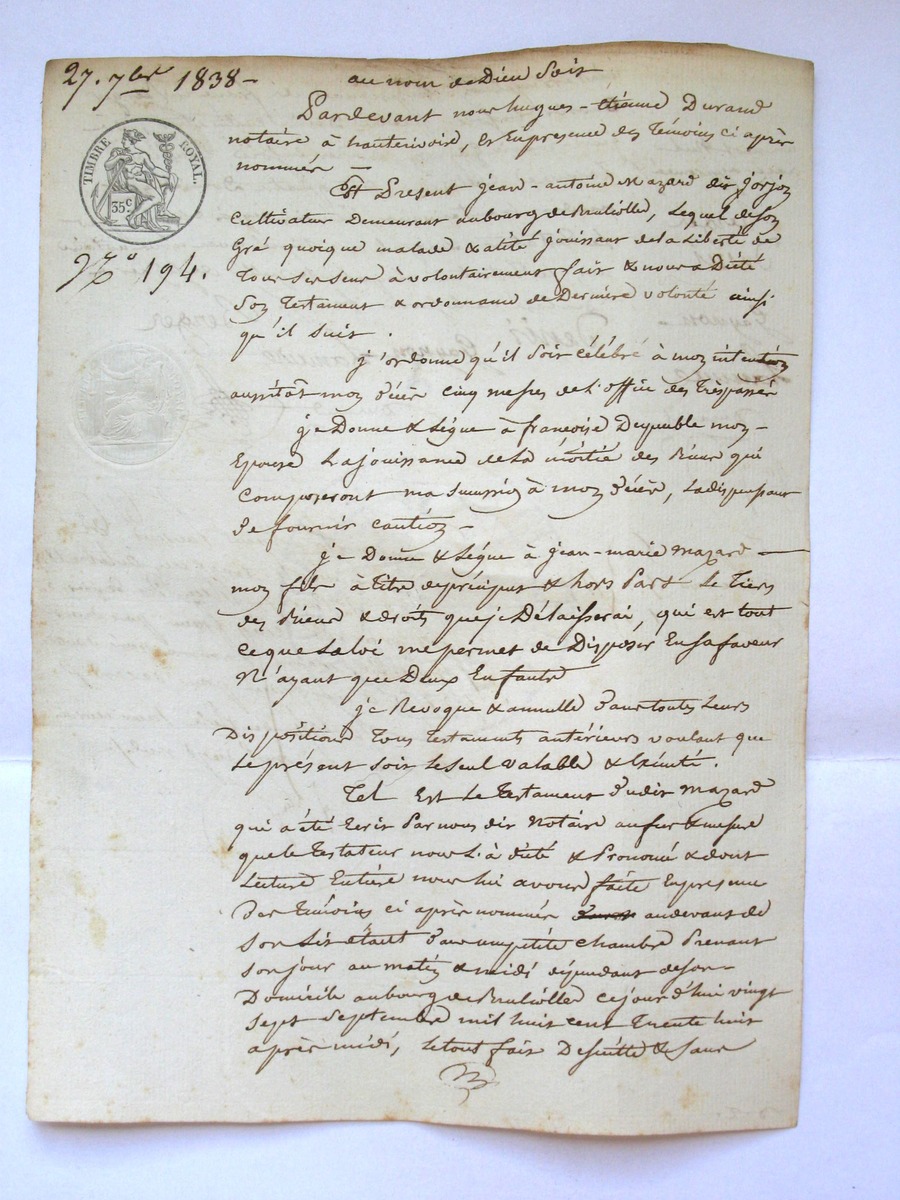 27. 7bre 1838 -
au nom de Dieu soit
Pardevant nous hugues-étienne Durand
notaire à hauterivoire, & en presence des Témoins ci après
nommés -
TIMBRE ROYAL.
35c
N° 194.
Est Present jean-antoine Mazard dit
Cultivateur Demeurant au bourg de Brullioles, Lequel de son
Gré quoique malade & alité jouissant de la Liberté de
Tous ses sens à volontairement fait & nous a Dicté
son Testament & ordonnance de Derniere volonté ainsi
qu'il suit.
j'ordonne qu'il soit célébré à mon intention
aussitôt mon décès cinq messes de l'office des Trépassés
je Donne & Lègue à françoise mon
Epouse La jouissance de la moitié des Biens qui
composeront ma succession à mon décès, La dispensant
de fournir caution -
je Donne & Légue à jean-marie mazard -
mon fils à titre de préciput & hors Part Le Tiers
des Biens & droits que je Délaisserai, qui est tout
ce que La Loi me permet de Disposer En sa faveur
N'ayant que Deux Enfants
je Revoque & annulle dans toutes Leurs
Dispositions Tous Testaments antérieurs voulant que
Le présent soit Le seul valable & Exécuté.
Tel Est Le Testament dudit Mazard
qui a été Ecrit Par nous dit Notaire au fur & mesure
que le Testateur nous L'a dicté & Prononcé & dont
Lecture Entière nous lui avons faite En presence
des Témoins ci après nommés au devant de
son Lit étant dans une petite chambre Prenant
son jour au matin & midi dépendant de son -
Domicile au bourg de Brullioles ce jourd'hui vingt
sept septembre mil huit cent Trente huit
après midi, Le tout fait De suitte & sans